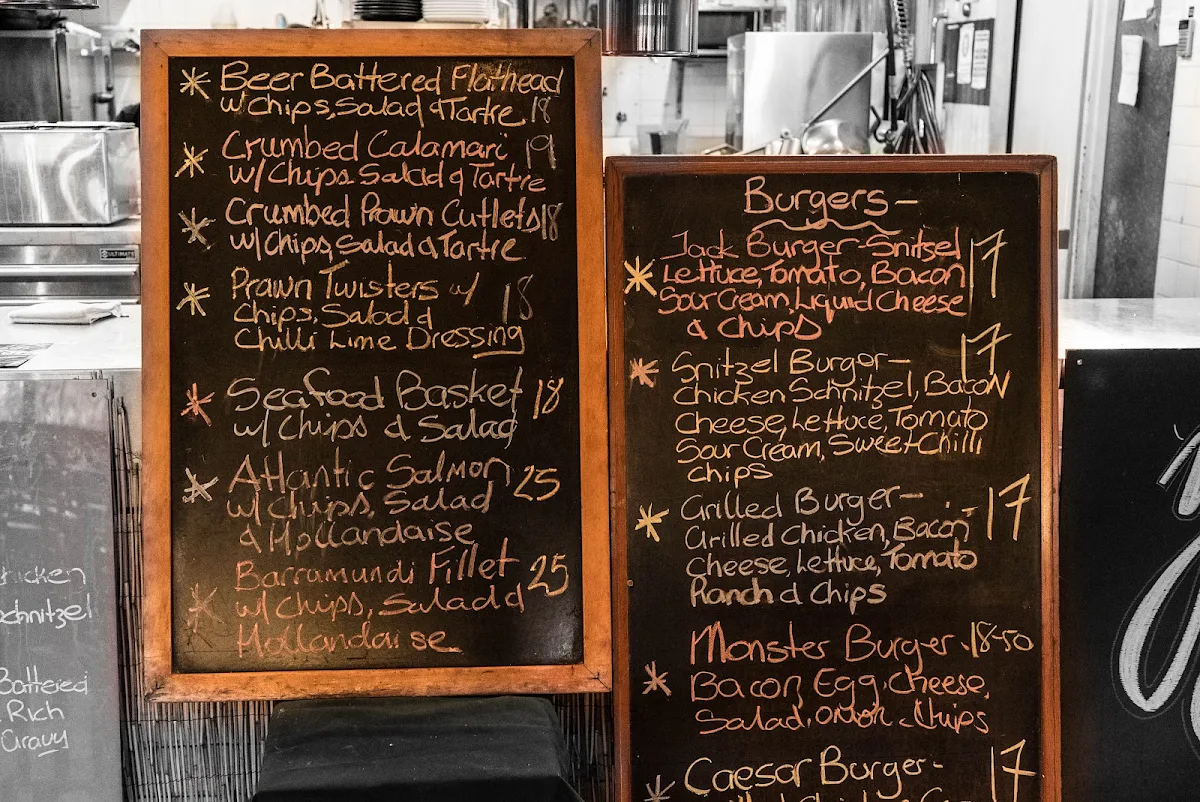 Beer Battered Flathead
w/ Chips, Salad & Tartre 18
Crumbed Calamari 19
w/ Chips Salad & Tartre
Crumbed Prawn Cutlets 18
w/ Chips, Salad & Tartre
Prawn Twisters w/ 18
Chips, Salad &
Chilli Lime Dressing
Seafood Basket 18
w/ Chips & Salad
Atlantic Salmon 25
w/ Chips, Salad
& Hollandaise
Barramundi Fillet 25
w/ Chips, Salad &
Hollandaise
Burgers-
Jack Burger-Snitzel 17
Lettuce, Tomato, Bacon
Sour Cream, Liquid Cheese
& Chips
Snitzel Burger- 17
Chicken Schnitzel, Bacon
Cheese, Lettuce, Tomato
Sour Cream, Sweet Chilli
Chips
Grilled Burger- 17
Grilled Chicken, Bacon
Cheese, Lettuce, Tomato
Ranch & Chips
Monster Burger 18-50
Bacon, Egg, Cheese,
Salad, onion, Chips
Caesar Burger- 17
Chicken
Schnitzel
Battered
Rich
Gravy
ULTIMATE